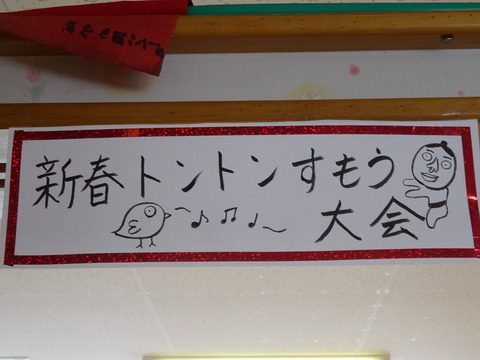 新春トントンすもう
大会